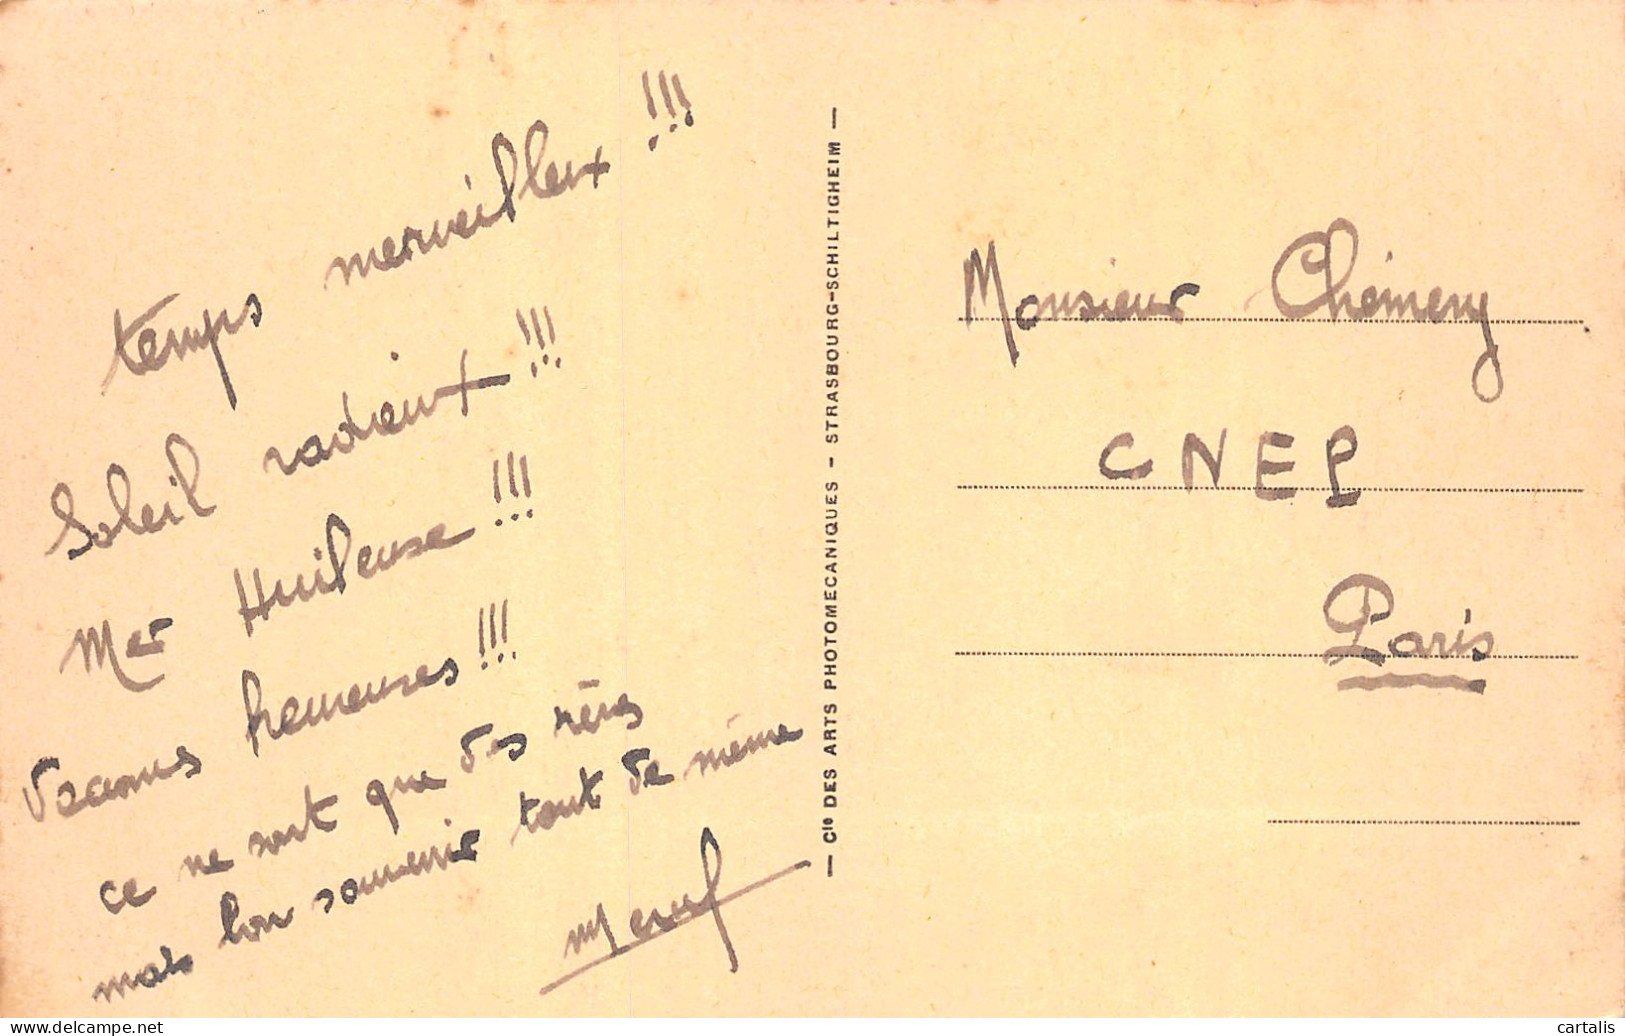 temps merveilleux !!!
Soleil radieux !!!
Mer Huileuse !!!
heureuses !!!
ce ne sont que des rêves
mais bon souvenir tout de même
— Cie DES ARTS PHOTOMECANIQUES - STRASBOURG-SCHILTIGHEIM —
Monsieur Chémery
CNEP
Paris
delcampe.net
cartalis